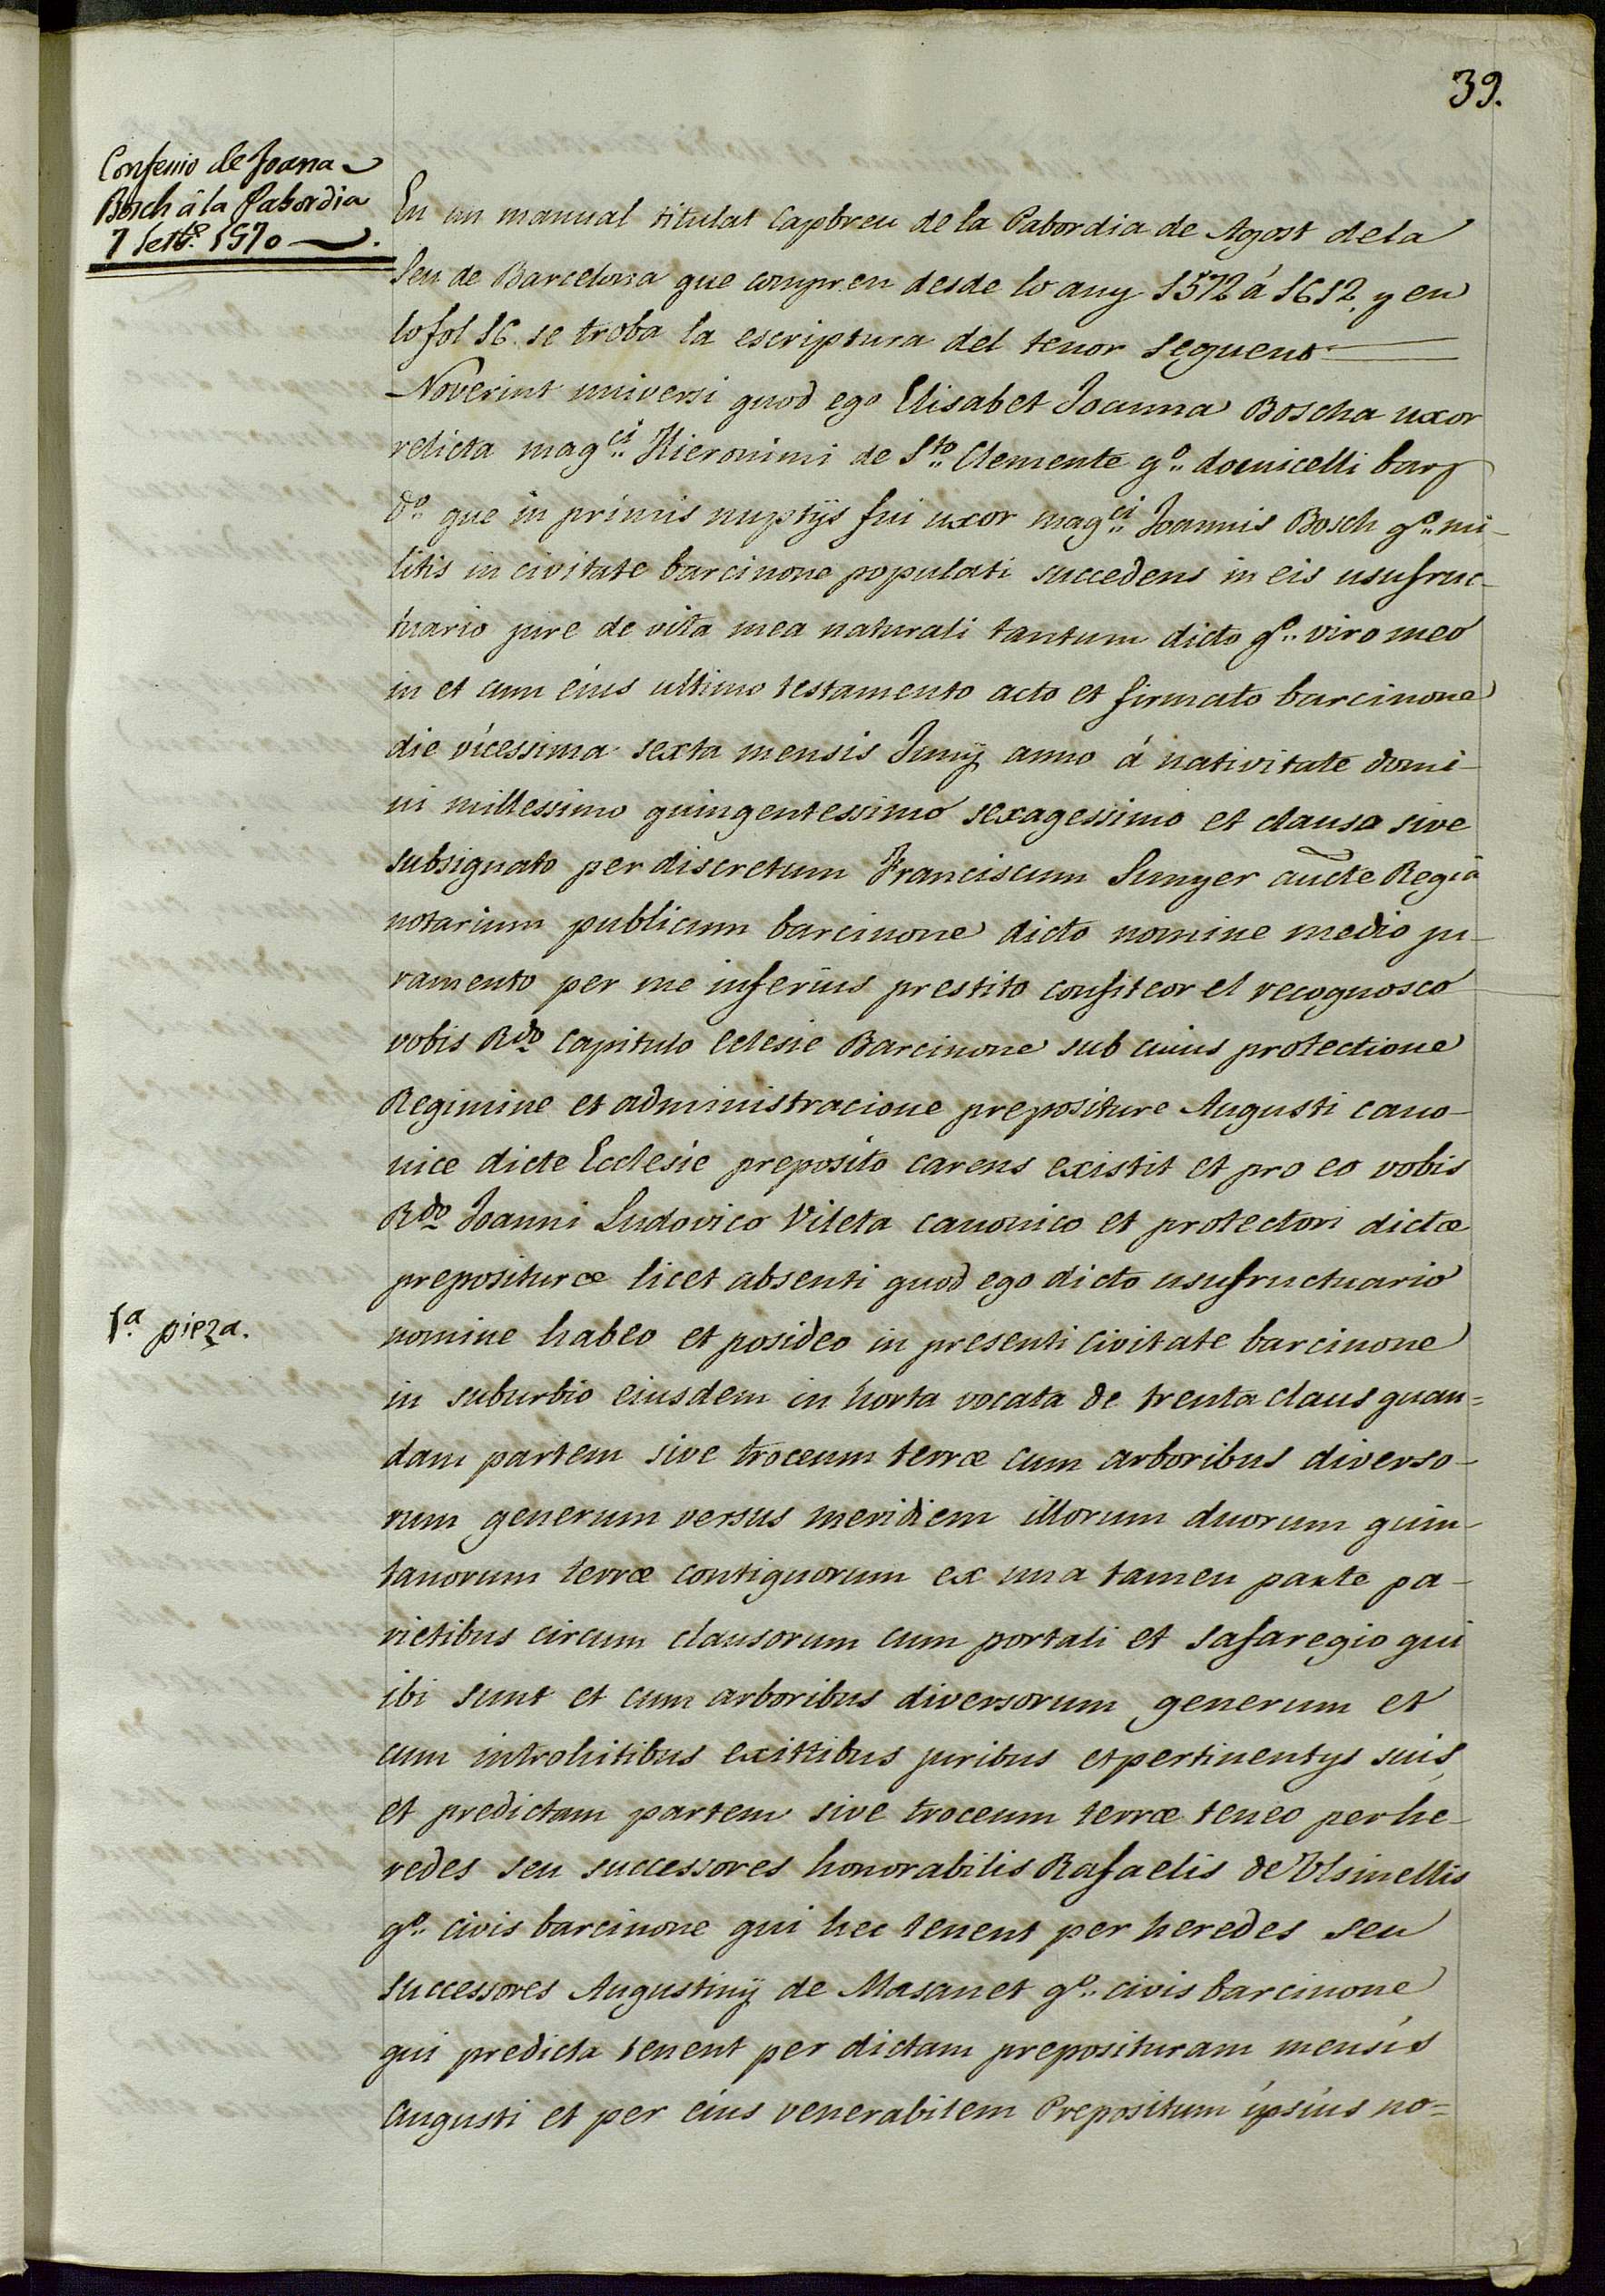 39.
Confessio de Joana
Bosch â la Pabordia
7 Setbe. 1570
En un manual titulat Capbreu de la Pabordia de Agost dela
Seu de Barcelona que compren desde lo any 1572 á 1612, y en
lo fol 16. se troba la escriptura del tenor seguent
Noverint universi quod ego Elisabet Joanna Boscha uxor
relicta magci. Hieronimi de Sto. Clemente qo. domicelli
do. que in primis nuptijs fui uxor magci. Joannis Bosch qo. mi-
litis in civitate barcinone populati succedens in eis usufruc-
tuario jure de vita mea naturali tantum dicto qo. viro meo
in et cum eius ultimo testamento acto et firmato barcinone
die vicessima sexta mensis Junij anno á nativitate domi-
ni millessimo quingentessimo sexagessimo et clauso sive
subsignato per discretum Franciscum Sunyer aucte Regia
notarium publicum barcinone dicto nomine medio ju-
ramento per me inferius prestito confiteor et recognosco
vobis Rdo Capitulo eclesie Barcinone sub cuius protectione
Regimine et administracione prepositure Augusti cano-
nice dicte Ecclesie preposito carens existit et pro eo vobis
Rdo Joanni Ludovico Vileta canonico et protectori dictæ
preposituræ licet absenti quod ego dicto usufructuario
1.a pieza.
nomine habeo et posideo in presenti civitate barcinone
in suburbio eiusdem in horta vocata de trenta claus quan=
dam partem sive troceum terræ cum arboribus diverso-
rum generum versus meridiem illorum duorum quin-
tanorum terræ contiguorum ex una tamen parte pa-
rietibus circum clausorum cum portali et safaregio qui
ibi sunt et cum arboribus diversorum generum et
cum introhitibus exittibus juribus et pertinentys suis,
et predictam partem sive troceum terræ teneo per he-
redes seu successores honorabilis Rafaelis de Ulsinellis
qo. civis barcinone qui hec tenent per heredes seu
successores Augustinij de Masanet qo. civis barcinone
qui predicta tenent per dictam preposituram mensis
Augusti et per eius venerabilem Prepositum ipsius no=